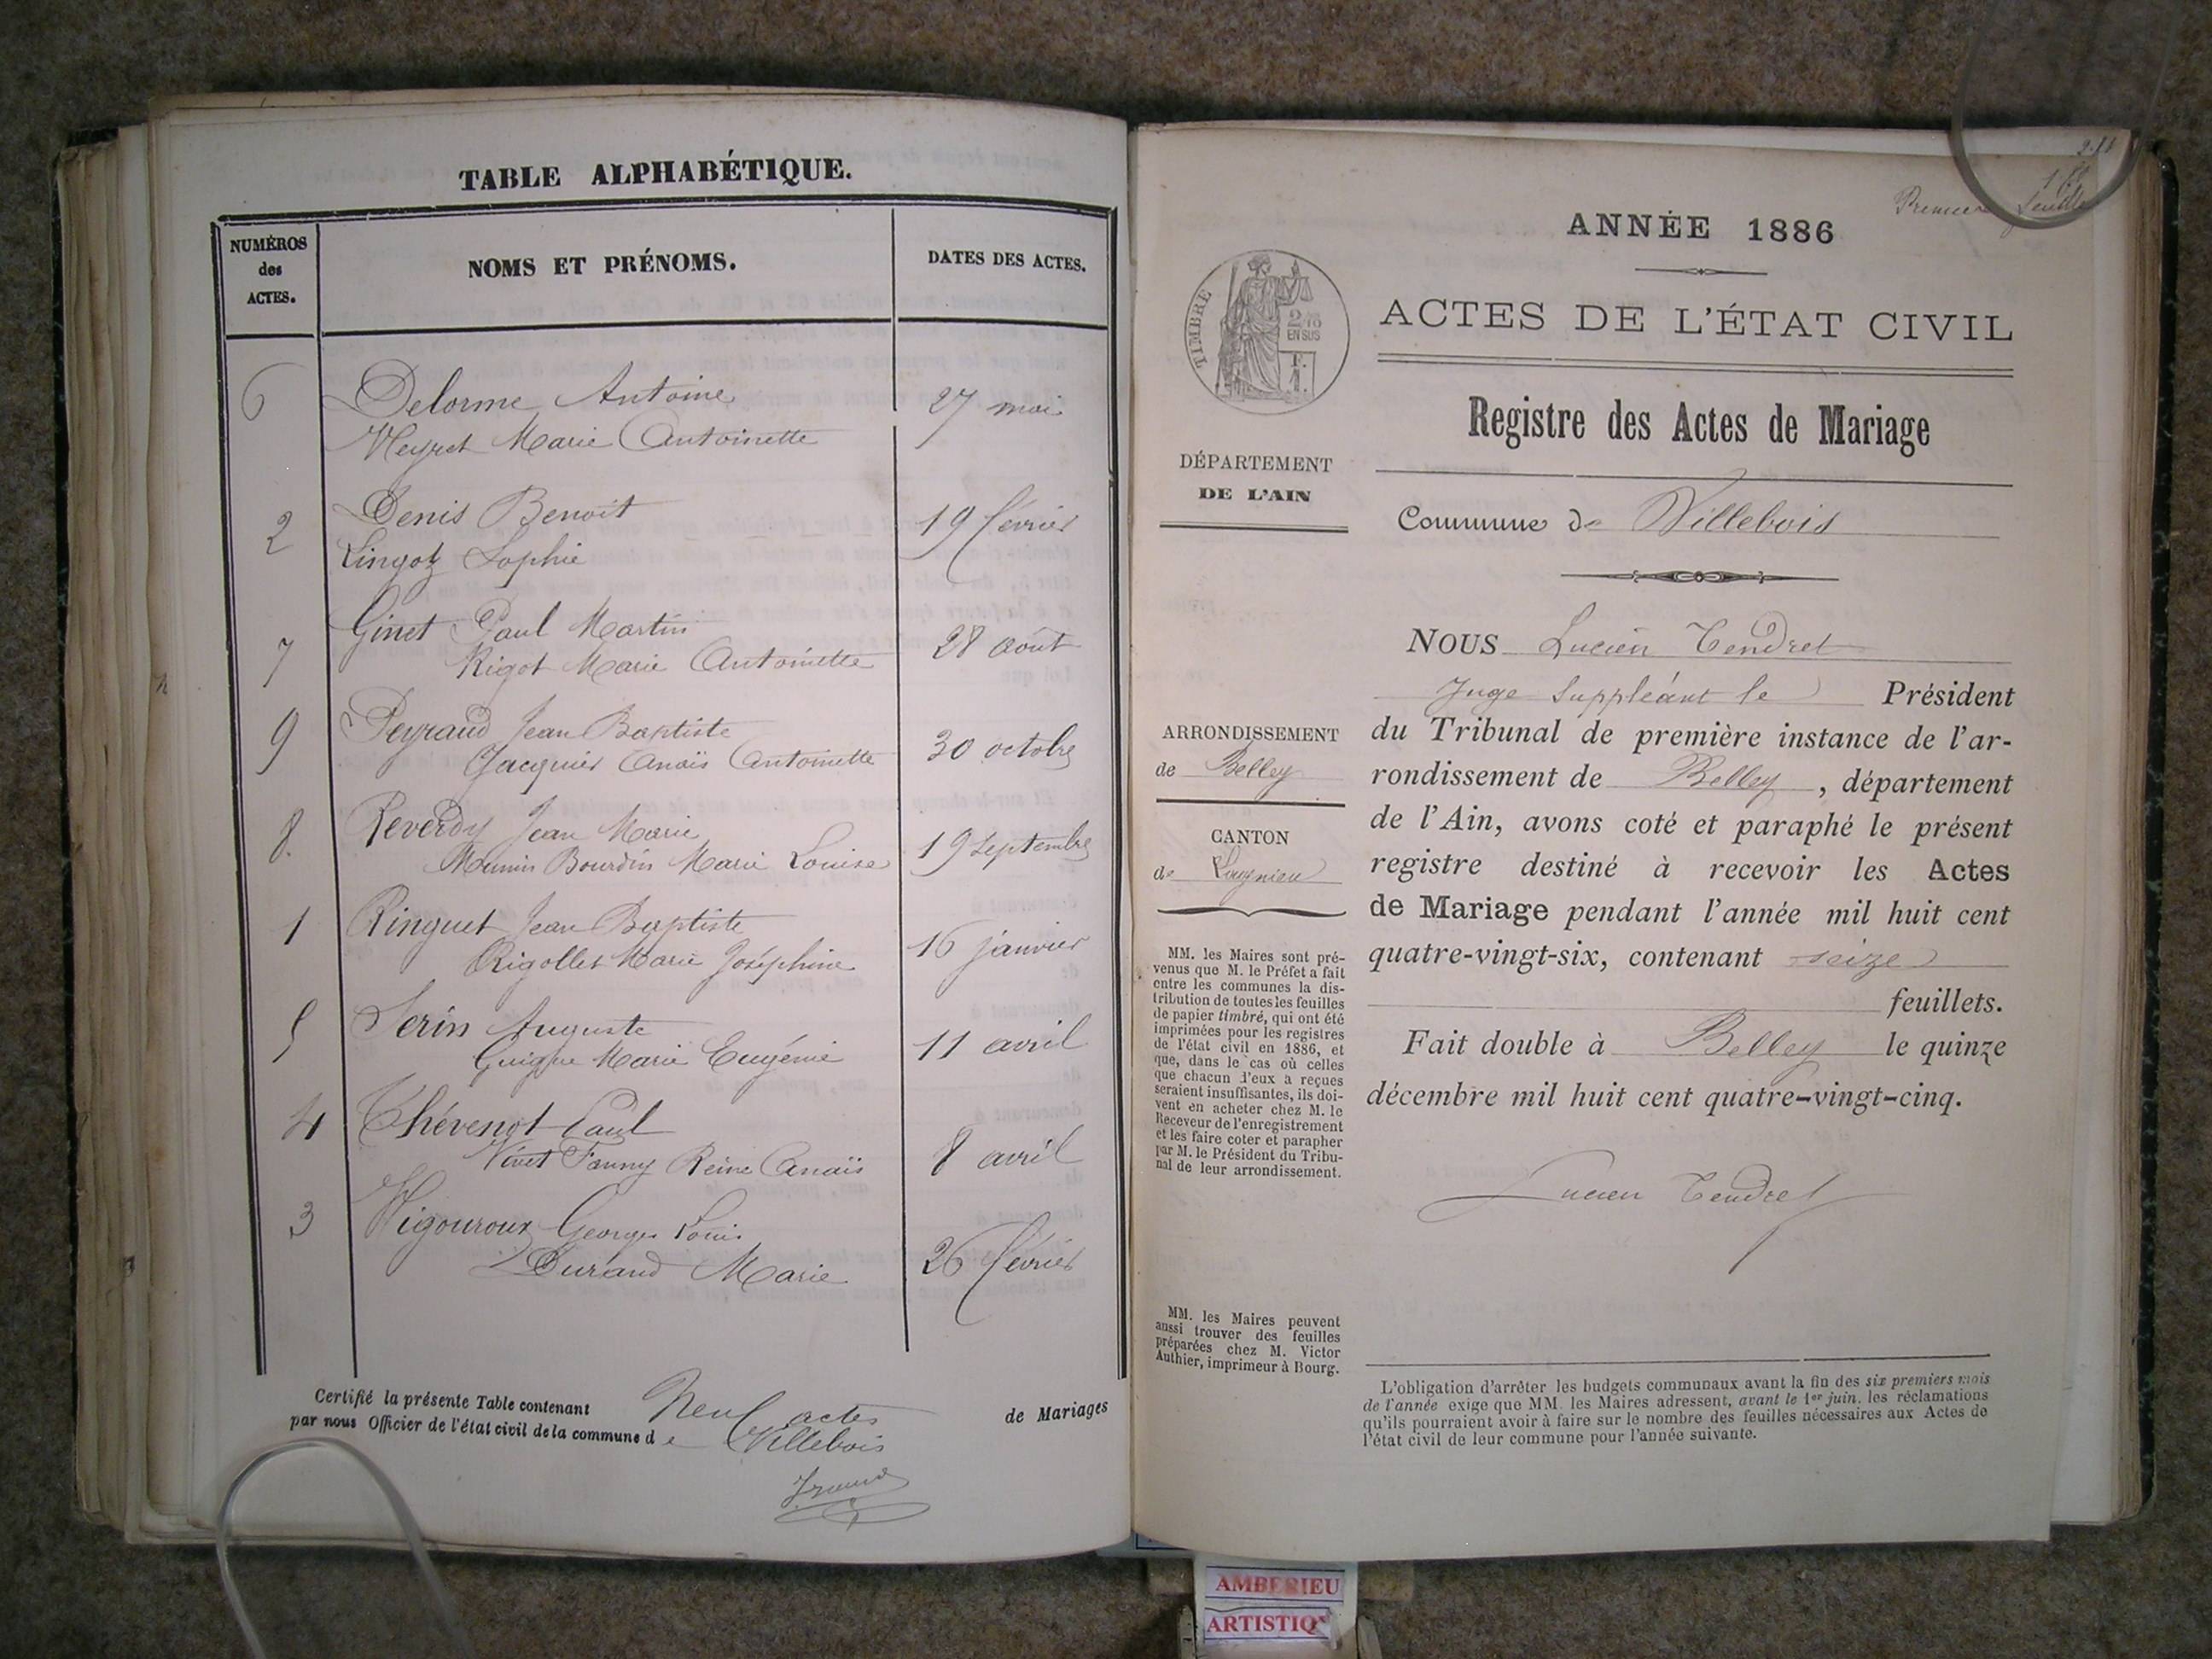 TABLE ALPHABÉTIQUE.
NUMÉROS
des
ACTES.
NOMS ET PRÉNOMS.
DATES DES ACTES.
6 Delorme Antoine 27 mai
Meyret Marie Antoinette
2 Denis Benoit 19 février
Lingot Sophie
7 Ginet Paul Martin 28 août
Rigot Marie Antoinette
9 Peyraud Jean Baptiste 30 octobre
Jacquier Anaïs Antoinette
8. Reverdy Jean Marie 19 septembre
Bourdin Marie Louise
1 Ringuet Jean Baptiste 16 janvier
Rigollet Marie Joséphine
5 Serin Auguste 11 avril
Guigue Marie Eugénie
4 Thévenot Paul 8 avril
Vivet Fanny Reine Anaïs
3 Vigouroux Georges Louis 26 février
Durand Marie
Certifié la présente Table contenant Neuf actes de Mariages
par nous Officier de l'état civil de la commune de Villebois
Premier feuillet
ANNÉE 1886
TIMBRE
2/10
EN SUS
ACTES DE L'ÉTAT CIVIL
Registre des Actes de Mariage
DÉPARTEMENT
DE L'AIN
Commune de Villebois
NOUS Lucien Tendret
Juge Suppléant le Président
du Tribunal de première instance de l'ar-
rondissement de Belley, département
de l'Ain, avons coté et paraphé le présent
registre destiné à recevoir les Actes
de Mariage pendant l'année mil huit cent
quatre-vingt-six, contenant seize
feuillets.
Fait double à Belley le quinze
décembre mil huit cent quatre-vingt-cinq.
Lucien Tendret
ARRONDISSEMENT
de Belley
CANTON
de Lagnieu
MM. les Maires sont pré-
venus que M. le Préfet a fait
entre les communes la dis-
tribution de toutes les feuilles
de papier timbré, qui ont été
imprimées pour les registres
de l'état civil en 1886, et
que, dans le cas où celles
que chacun d'eux a reçues
seraient insuffisantes, ils doi-
vent en acheter chez M. le
Receveur de l'enregistrement
et les faire coter et parapher
par M. le Président du Tribu-
nal de leur arrondissement.
MM. les Maires peuvent
aussi trouver des feuilles
préparées chez M. Victor
Authier, imprimeur à Bourg.
L'obligation d'arrêter les budgets communaux avant la fin des six premiers mois
de l'année exige que MM. les Maires adressent, avant le 1er juin, les réclamations
qu'ils pourraient avoir à faire sur le nombre des feuilles nécessaires aux Actes de
l'état civil de leur commune pour l'année suivante.
AMBERIEU
ARTISTIQ